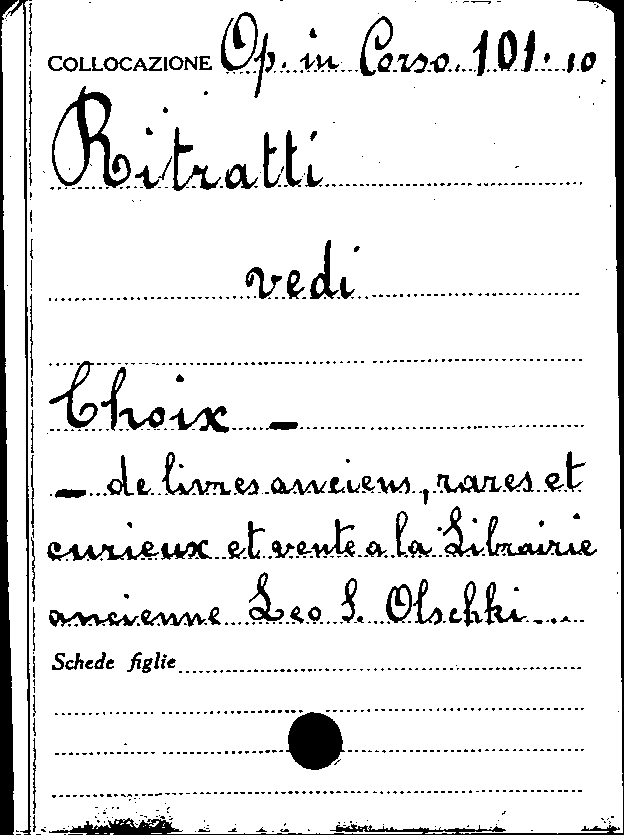 COLLOCAZIONE Op. in Corso. 101. 10
Ritratti
vedi
Choix —
— de livres anciens, rares et
curieux et vente a la Librairie
ancienne Leo S. Olschki...
Schede figlie